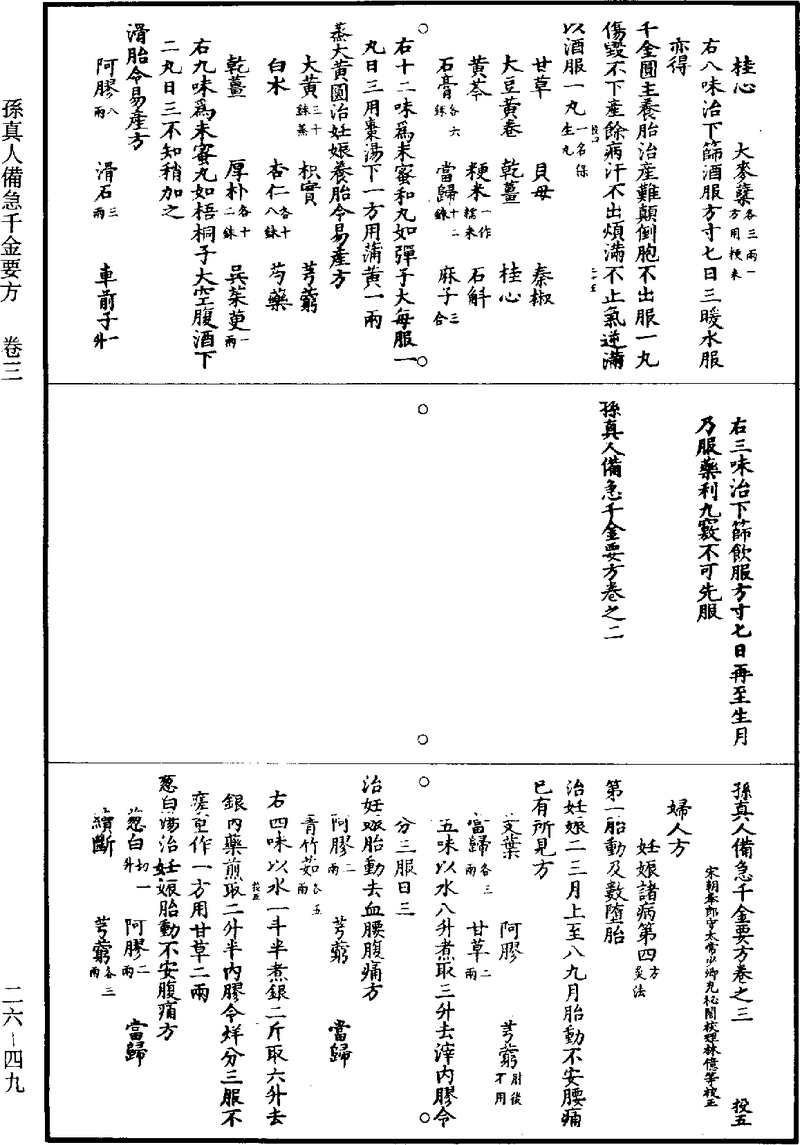 桂心　大麥蘖各三兩一方用粳米
右八味治下篩酒服方寸七日三暖水服
亦得
千金圓主養胎治產難顛倒胞不出服一丸
傷毀不下產餘病汗不出煩滿不止氣逆滿
以酒服一丸一名保生丸
甘草　貝母　秦椒
大豆黃卷　乾薑　桂心
黃芩　粳米一作糯米　石斛
石膏各六銖　當歸十二銖　麻子三合
右十二味爲末蜜和丸如彈子大每服一
丸日三用棗湯下一方用蒲黃一兩
蒸大黃圓治妊娠養胎令易產方
大黃三十銖蒸　枳實　芎藭
白朮　杏仁各十八銖　芍藥
乾薑　厚朴各十二銖　吳茱萸一兩
右九味爲末蜜丸如梧桐子大空腹酒下
二丸日三不知稍加之
滑胎令易產方
阿膠八兩　滑石三兩　車前子一升
右三味治下篩飲服方寸七日再至生月
乃服藥利九竅不可先服
孫真人備急千金要方卷之二
孫真人備急千金要方卷之三　投五
宋朝奉郎守太常少卿充秘閣校理林億等校正
婦人方
妊娠諸病第四方灸法
第一胎動及數墮胎
治妊娠二三月上至八九月胎動不安腰痛
已有所見方
艾葉　阿膠　芎藭肘後不用
當歸各三兩　甘草二兩
五味以水八升煮取三升去滓內膠令
分三服日三
治妊娠胎動去血腰腹痛方
阿膠二兩　芎藭　當歸
青竹茹各五兩
右四味以水一斗半煮銀二斤取六升去
銀內藥煎取二升半內膠令烊分三服不
瘥重作一方用甘草二兩
葱白湯治妊娠胎動不安腹痛方
葱白切一升　阿膠二兩　當歸
續斷　芎藭各三兩
孫真人備急千金要方　卷三
二六－四九